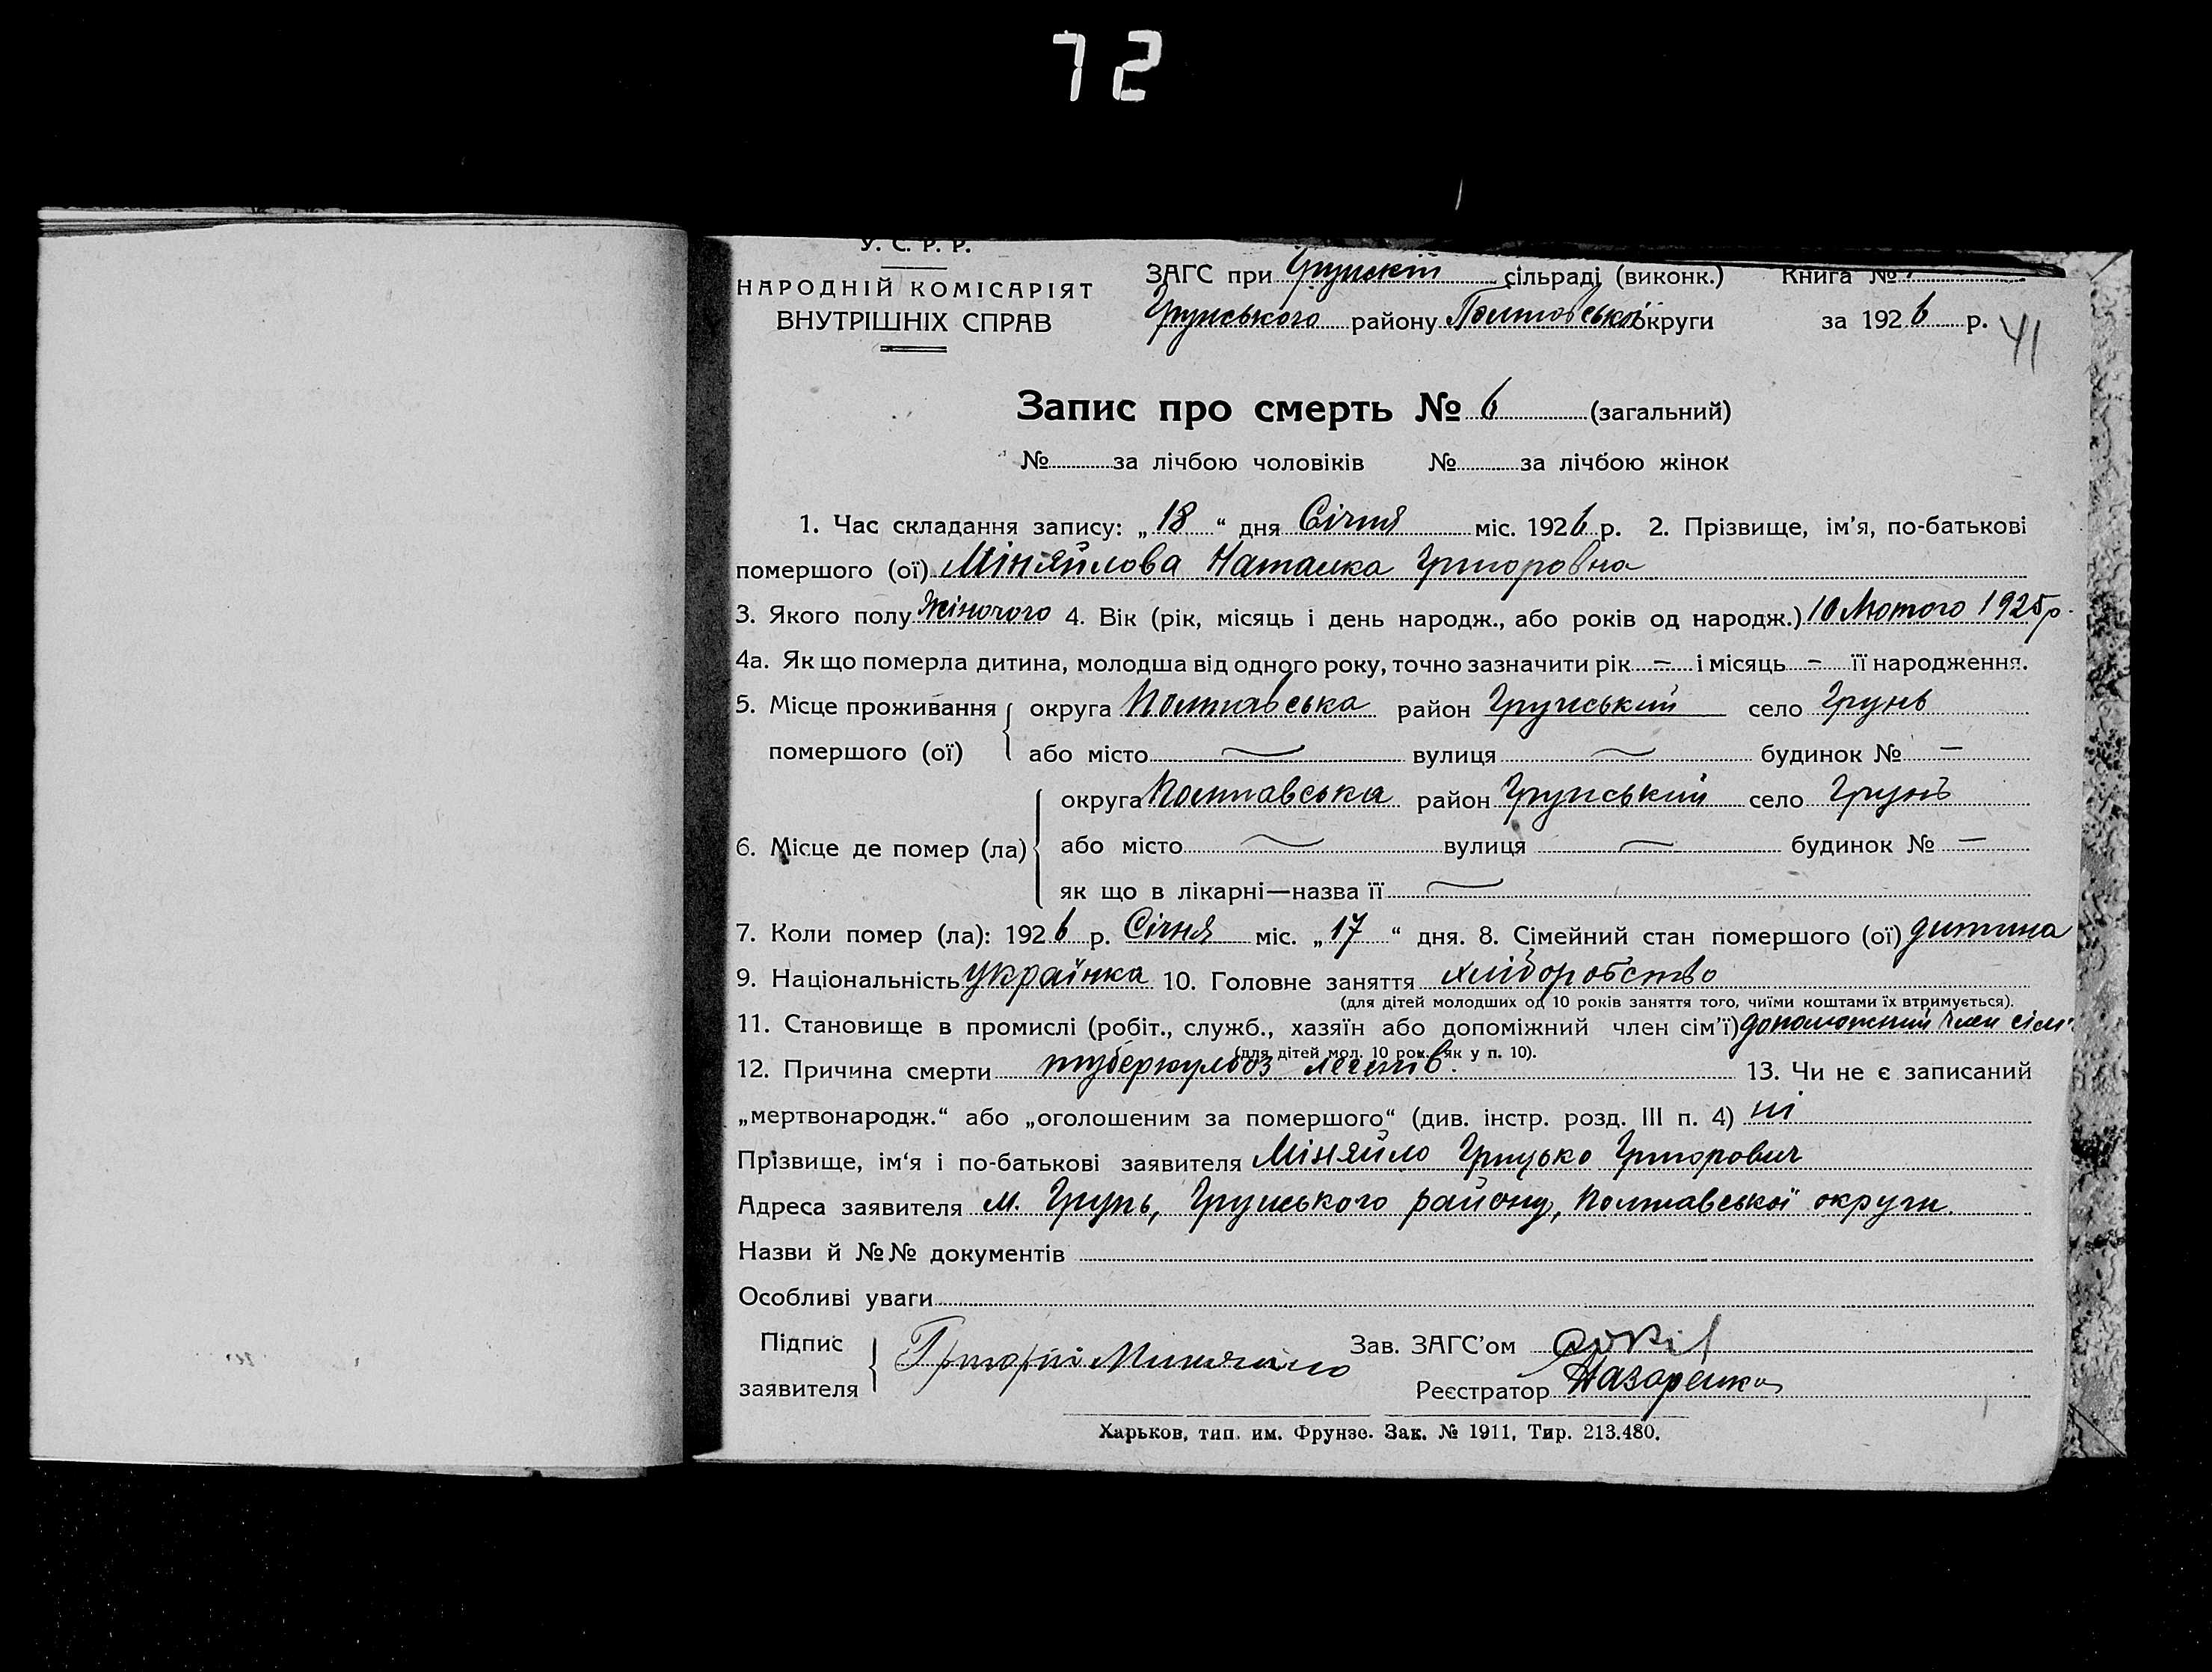 72
У. С. Р. Р.
НАРОДНІЙ КОМІСАРІЯТ
ВНУТРІШНІХ СПРАВ
ЗАГС при Грунскій сільраді (виконк.) Книга №
Грунського району Полтовської округи за 1926 р. 41
Запис про смерть № 6 (загальний)
№ за лічбою чоловіків № за лічбою жінок
1. Час складання запису: „18“ дня Січня міс. 1926 р. 2. Прізвище, ім'я, по-батькові
помершого (ої) Міняйлова Наталка Григоровна
3. Якого полу Жіночого 4. Вік (рік, місяць і день народж., або років од народж.) 10 Лютого 1925 р.
4а. Як що померла дитина, молодша від одного року, точно зазначити рік – і місяць – її народження.
5. Місце проживання округа Полтавська район Грунський село Грунь
помершого (ої) або місто — вулиця — будинок № —
округа Полтавська район Грунський село Грунь
6. Місце де помер (ла) або місто — вулиця — будинок № —
як що в лікарні—назва її —
7. Коли помер (ла): 1926 р. Січня міс. „17“ дня. 8. Сімейний стан помершого (ої) дитина
9. Національність українка 10. Головне заняття хліборобство
(для дітей молодших од 10 років заняття того, чиїми коштами їх втримується).
11. Становище в промислі (робіт., служб., хазяїн або допоміжний член сім'ї) допоможний член сім'ї
(для дітей мол. 10 рок. як у п. 10).
12. Причина смерти туберкульоз легенів. 13. Чи не є записаний
„мертвонародж.“ або „оголошеним за помершого“ (див. інстр. розд. III п. 4) ні
Прізвище, ім'я і по-батькові заявителя Міняйло Грицько Григорович
Адреса заявителя м. Грунь, Грунського району, Полтавської округи.
Назви й №№ документів
Особливі уваги
Підпис
заявителя Григорій Миняйло Зав. ЗАГС'ом
Реєстратор Назаренко
Харьков, тип. им. Фрунзе. Зак. № 1911, Тир. 213.480.